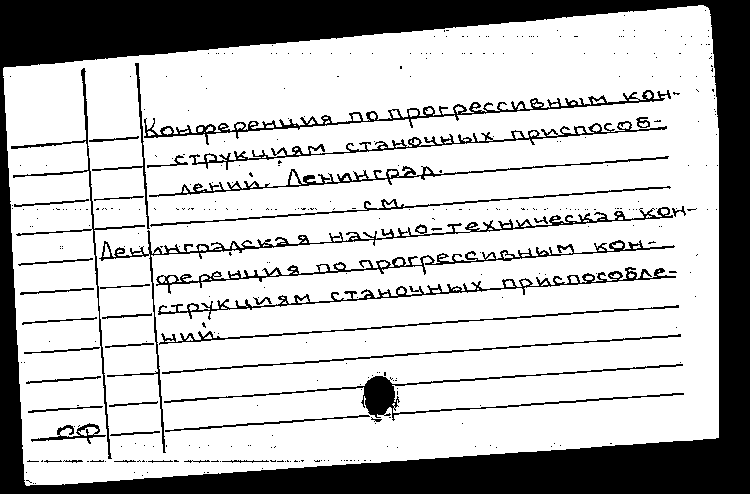 Конференция по прогрессивным кон-
струкциям станочных приспособ-
лений. Ленинград.
см.
Ленинградская научно-техническая кон-
ференция по прогрессивным кон-
струкциям станочных приспособле-
ний.
ОФ